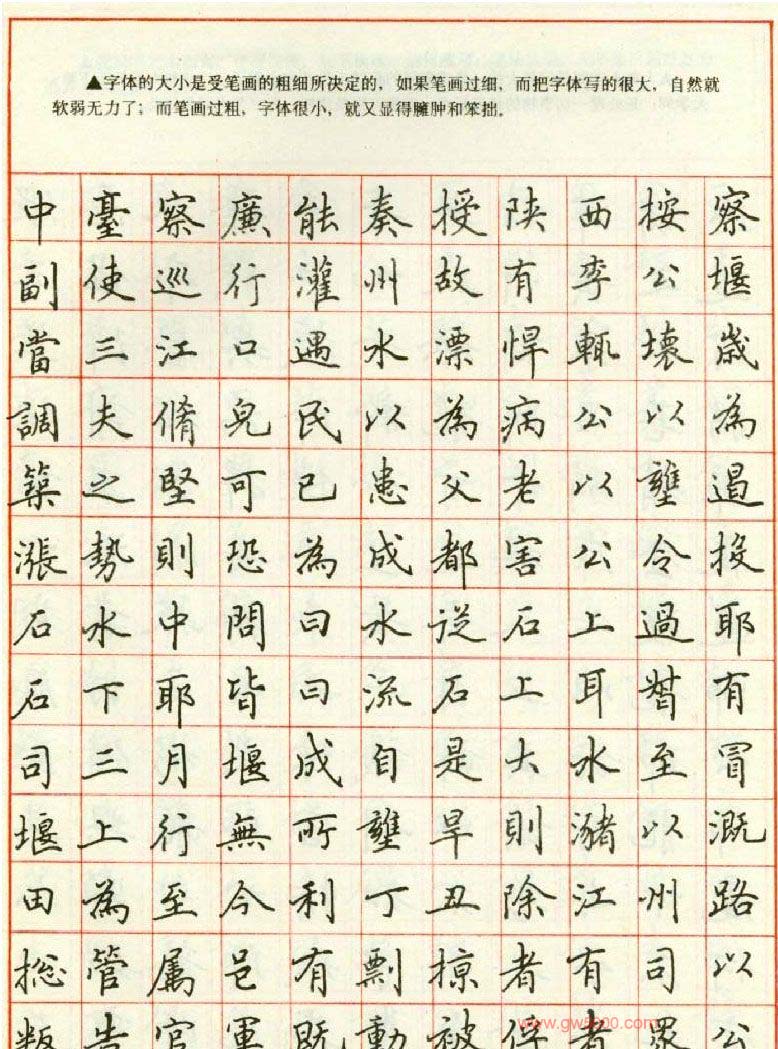 ▲字体的大小是受笔画的粗细所决定的，如果笔画过细，而把字体写的很大，自然就
软弱无力了；而笔画过粗，字体很小，就又显得臃肿和笨拙。
中臺察廉能奏授陕西按察
副使巡行灌州故有李公堰
當三江口遇水漂悍輒壞歲
調夫脩民以為病公以為
築之堅可已患父老以壅遏
漲勢則恐為成都害公令投
石水中問曰水従石上過耶
石下耶皆曰流石上耳有
司三月堰成自是大水至冒
堰上行無所壅旱則瀦以溉
田為至今利丁丑除江州路
総管属邑有剽掠者有司以
叛告官軍既動被俘者眾公